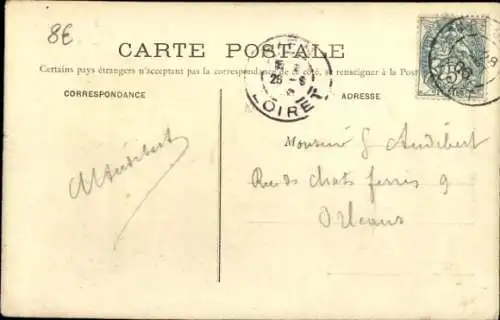 8€
CARTE POSTALE
Certains pays étrangers n'acceptent pas la correspondance de ce côté, se renseigner à la Poste
CORRESPONDANCE
ADRESSE
Monsieur G Audibert
Rue des Chats ferrés 9
Orléans
Audibert
LOIRET